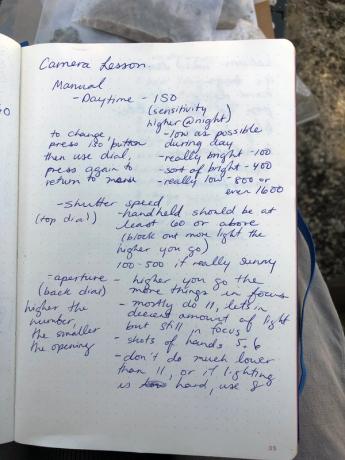 Camera Lesson.
Manual
- Daytime - ISO
(sensitivity
higher @ night)
to change,
press iso button
then use dial,
press again to
return to menu
- low as possible
during day
- really bright - 100
- sort of bright - 400
- really low - 800 or
even 1600
- Shutter speed
(top dial)
- handheld should be at
least 60 or above
(block out more light the
higher you go)
100-500 if really sunny
- aperture
(back dial)
higher the
number,
the smaller
the opening
- higher you go the
more things in focus
- mostly do 11, lets in
decent amount of light
but still in focus
- shots of hands 5.6
- don't do much lower
than 11, or if lighting
is hard, use 8
35